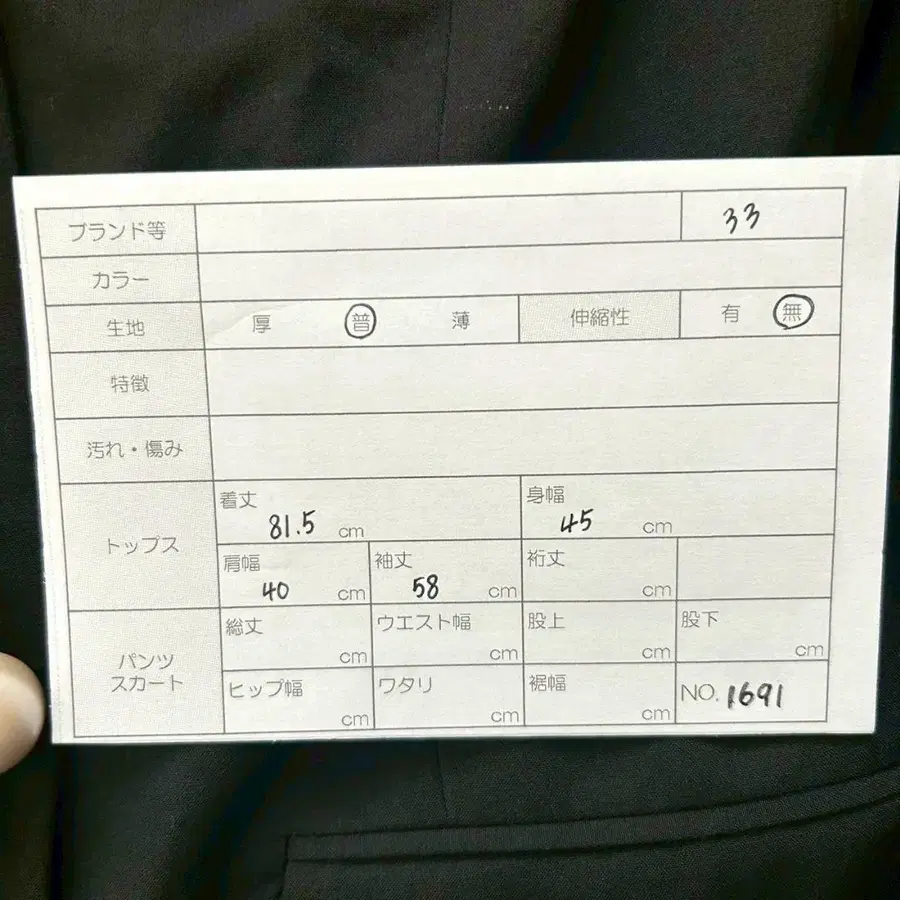 ブランド等 33
カラー
生地 厚 普 薄 伸縮性 有 無
特徴
汚れ・傷み
トップス
着丈 81.5 cm 身幅 45 cm
肩幅 40 cm 袖丈 58 cm 裄丈 cm
パンツ
スカート
総丈 cm ウエスト幅 cm 股上 cm 股下 cm
ヒップ幅 cm ワタリ cm 裾幅 cm NO. 1691